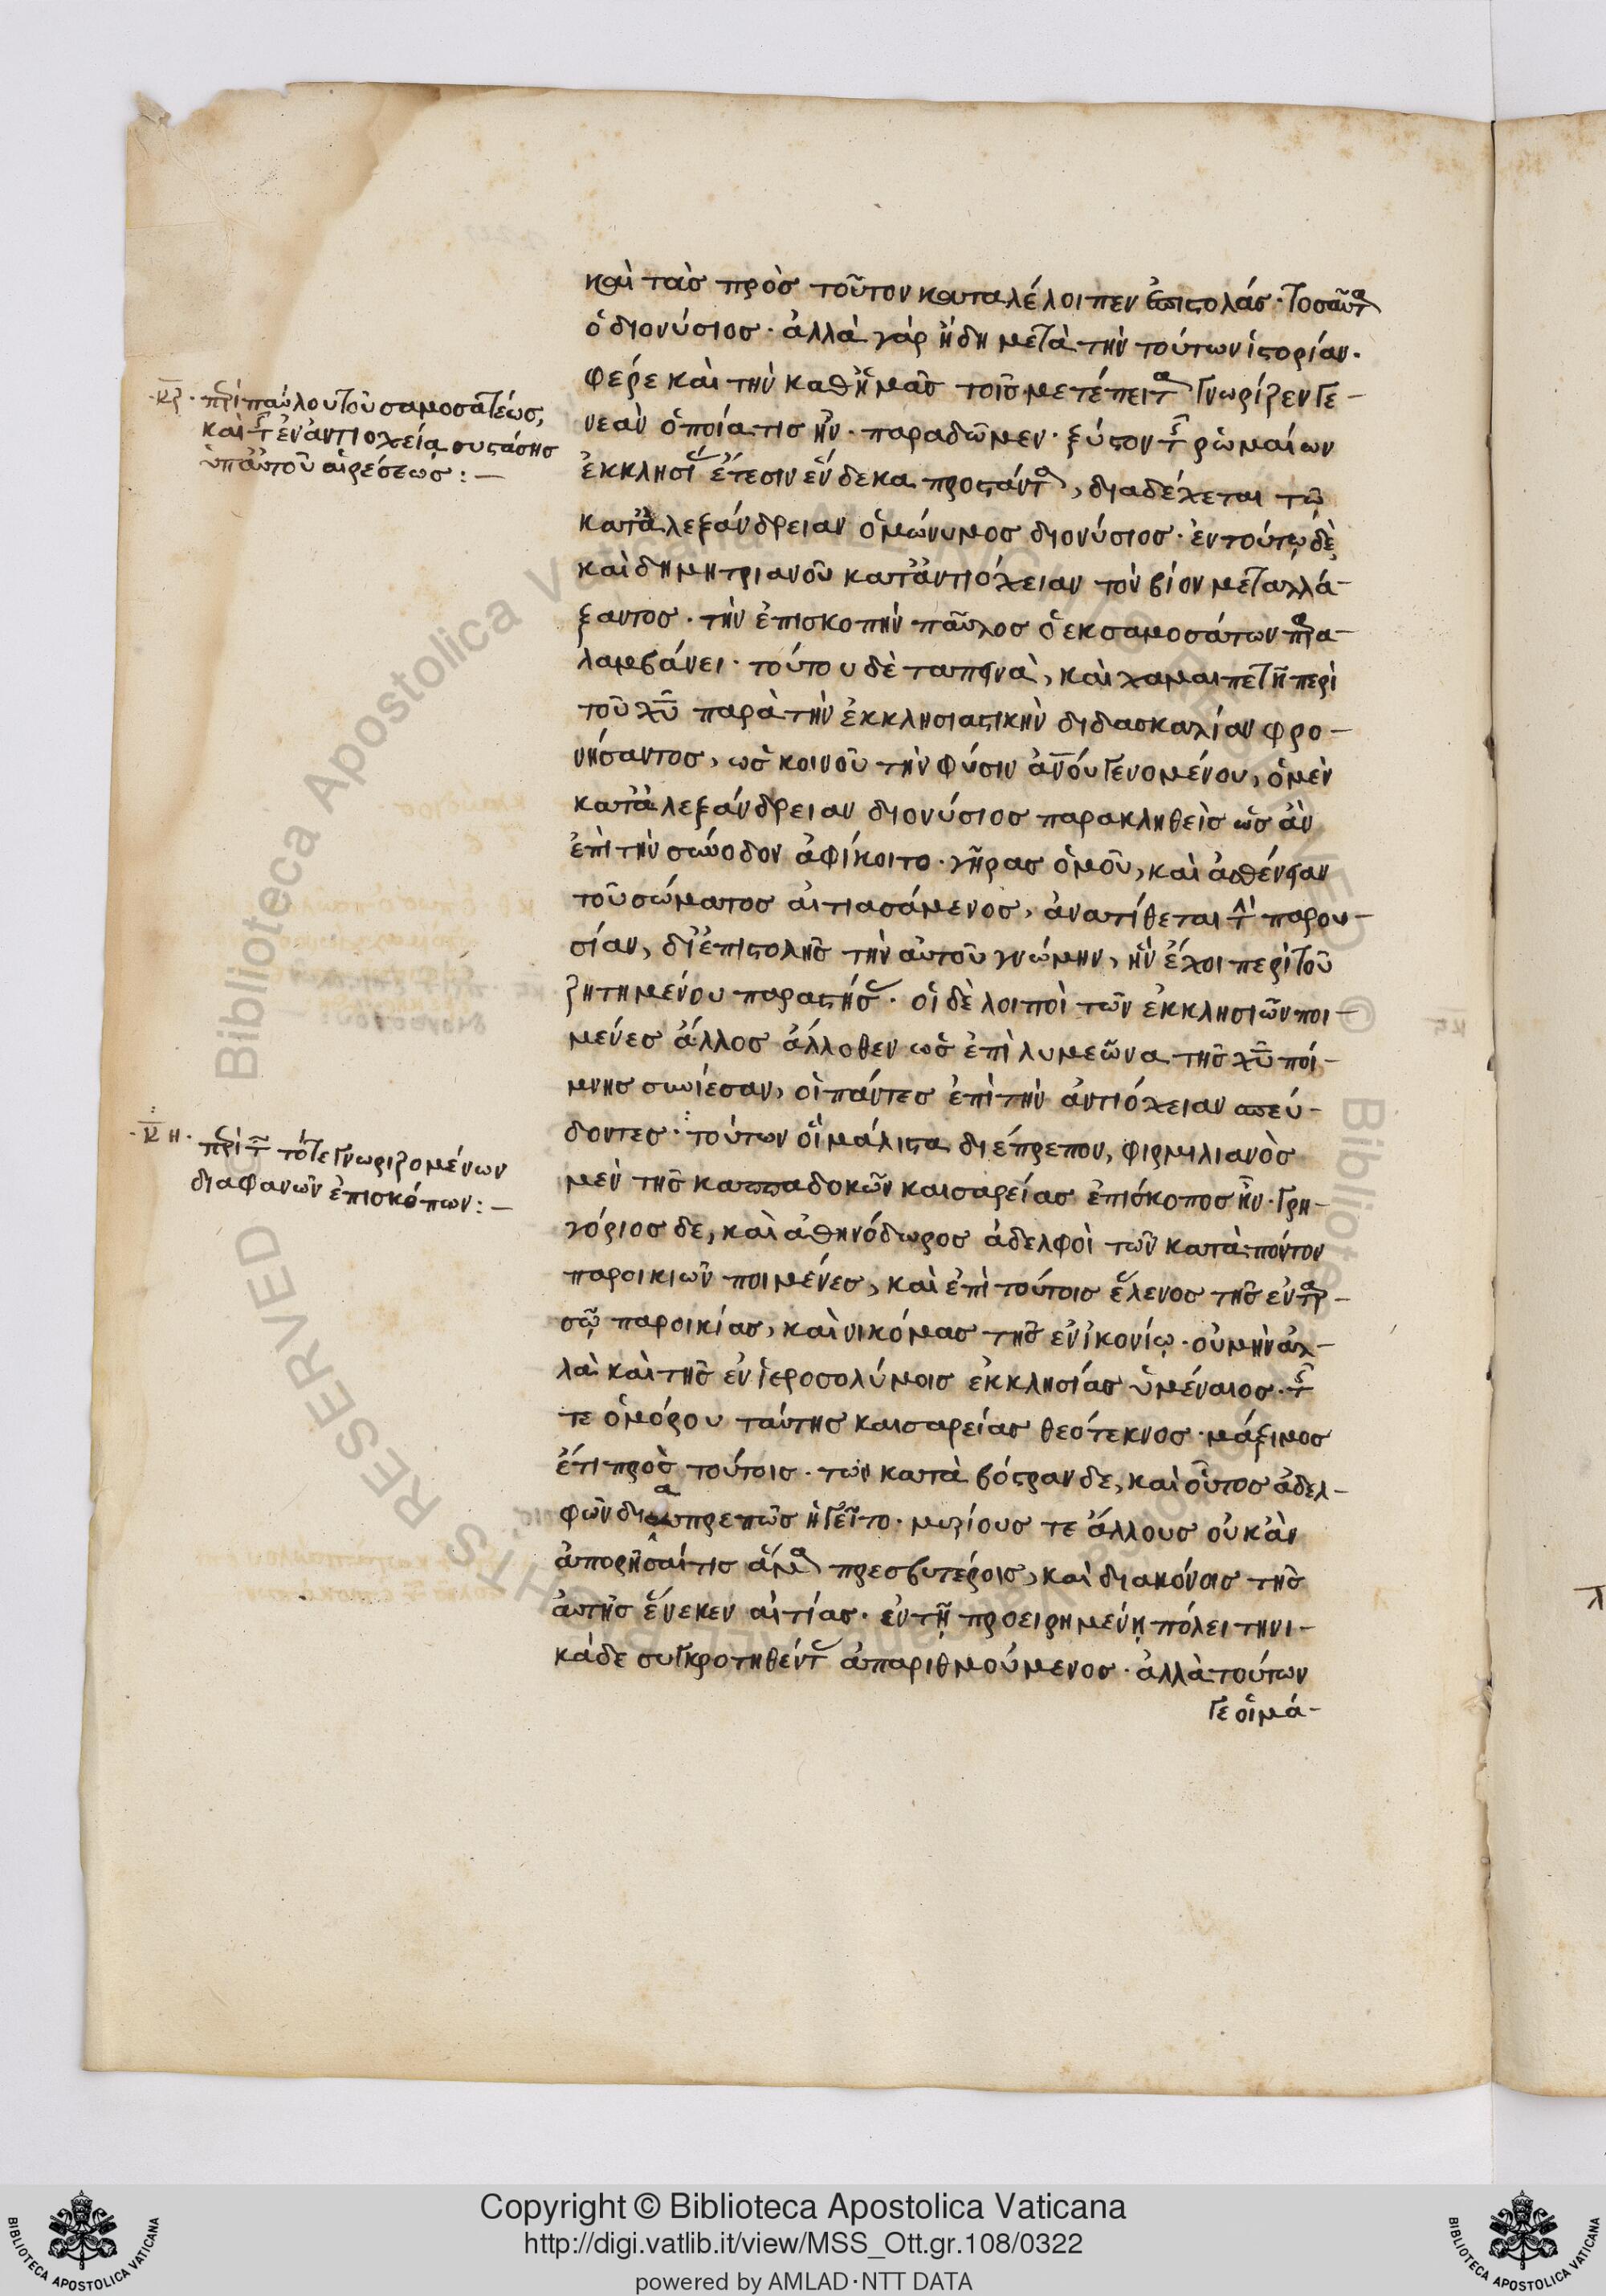 καὶ τὰς πρὸς τοῦτον καταλέλοιπεν ἐπιστολάς· τοσαῦτα
ὁ διονύσιος· ἀλλὰ γὰρ ἤδη μετὰ τὴν τούτων ἱστορίαν·
φέρε καὶ τὴν καθ' ἡμᾶς τοῖς μετέπειτα γνωρίζειν γε-
·κζ· περὶ παύλου τοῦ σαμοσατέως,
καὶ τῆς ἐν ἀντιοχεία συστάσης
ὑπ' αὐτοῦ αἱρέσεως:—
νεὰν ὁποία τις ἦν· παραδῶμεν· ξύστον τῆς ῥωμαίων
ἐκκλησίας ἔτεσιν ἕνδεκα προστάντα, διαδέχεται τῶ
κατ' ἀλεξάνδρειαν ὁμώνυμος διονύσιος· ἐν τούτῳ δὲ
καὶ δημητριανοῦ κατ' ἀντιόχειαν τὸν βίον μεταλλά-
ξαντος· τὴν ἐπισκοπὴν παῦλος ὁ ἐκ σαμοσάτων παρα-
λαμβάνει· τούτου δὲ ταπεινὰ, καὶ χαμαιπετῆ περὶ
τοῦ χῦ παρὰ τὴν ἐκκλησιαστικὴν διδασκαλίαν φρο-
νήσαντος, ὡς κοινοῦ τὴν φύσιν ἀνου γενομένου, ὁ μὲν
κατ' ἀλεξάνδρειαν διονύσιος παρακληθεὶς ὡς ἂν
ἐπὶ τὴν σύνοδον ἀφίκοιτο· γῆρας ὁμοῦ, καὶ ἀσθένειαν
τοῦ σώματος αἰτιασάμενος, ἀνατίθεται τὴν παρου-
σίαν, δι' ἐπιστολῆς τὴν αὐτοῦ γνώμην, ἣν ἔχοι περὶ τοῦ
ζητημένου παραστήσας· οἱ δὲ λοιποὶ τῶν ἐκκλησιῶν ποι-
μένες ἄλλος ἄλλοθεν ὡς ἐπὶ λυμεῶνα τῆς χῦ ποί-
μνης συνίεσαν, οἱ πάντες ἐπὶ τὴν ἀντιόχειαν σπεύ-
·κη· περὶ τῶν τότε γνωριζομένων
διαφανῶν ἐπισκόπων:—
δοντες· τούτων οἱ μάλιστα διέπρεπον, φιρμιλιανὸς
μὲν τῆς καππαδοκῶν καισαρείας ἐπίσκοπος ἦν· γρη-
γόριος δε, καὶ ἀθηνόδωρος ἀδελφοὶ τῶν κατὰ πόντον
παροικιῶν ποιμένες, καὶ ἐπὶ τούτοις ἕλενος τῆς ἐν ταρ-
σῷ παροικίας, καὶ νικόμας τῆς ἐν ἰκονίῳ· οὐ μὴν ἀλ-
λὰ καὶ τῆς ἐν ἱεροσολύμοις ἐκκλησίας ὑμέναιος· τῆς
τε ὁμόρου ταύτης καισαρείας θεότεκνος· μάξιμος
ἔτι πρὸς τούτοις· τῶν κατὰ βόστραν δε, καὶ οὗτος ἀδελ-
φῶν διαπρεπῶς ἡγεῖτο· μυρίους τε ἄλλους οὐκ ἂν
ἀπορήσαί τις ἅμα πρεσβυτέροις, καὶ διακόνοις τῆς
αὐτῆς ἕνεκεν αἰτίας· ἐν τῇ προειρημένῃ πόλει τηνι-
κάδε συγκροτηθέντας ἀπαριθμούμενος· ἀλλὰ τούτων
γε οἱ μά-
Copyright © Biblioteca Apostolica Vaticana
http://digi.vatlib.it/view/MSS_Ott.gr.108/0322
powered by AMLAD·NTT DATA